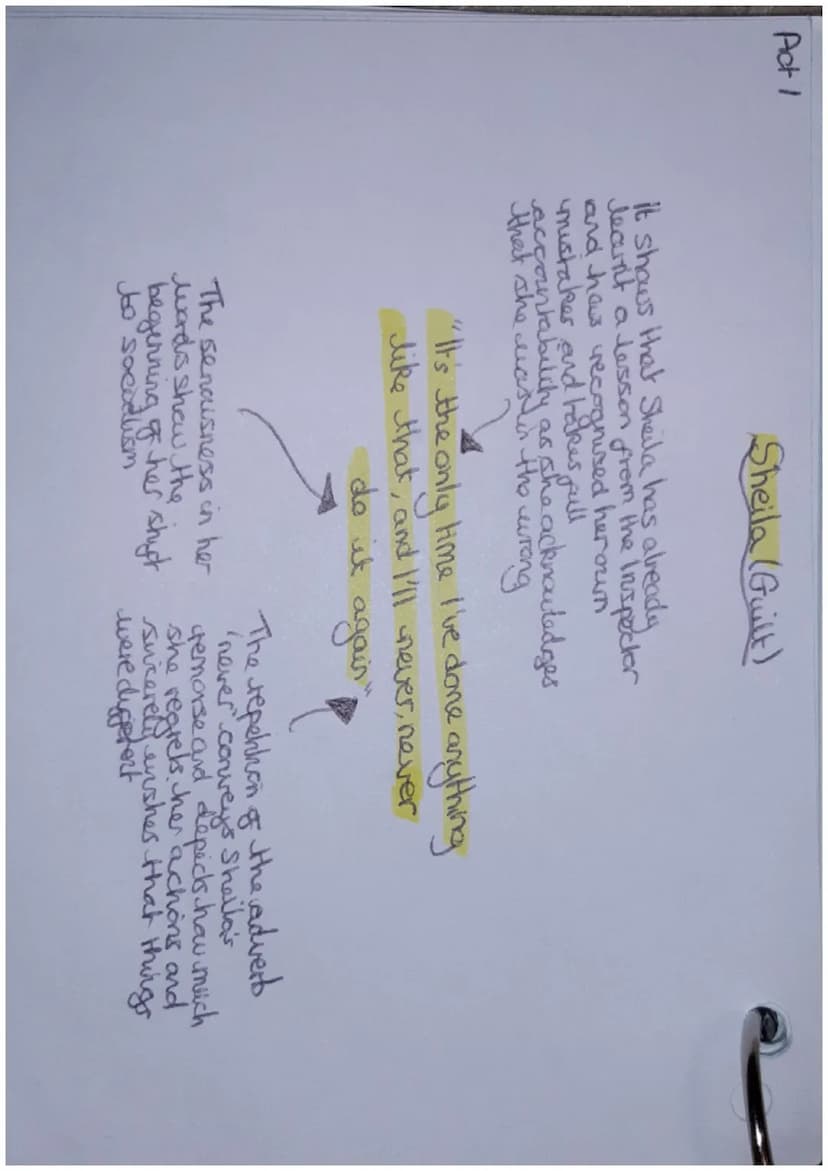 Act 1
Sheila (Guilt)
It shows that Sheila has already
learnt a lesson from the Inspector
and has recognised her own
mistakes and takes full
accountability as she acknowledges
that she was in the wrong
"It's the only time I've done anything
like that, and I'll never, never
do it again"
The seriousness in her
words show the
beginning of her shift
to socialism
The repetition of the adverb
'never' conveys Sheila's
remorse and depicts how much
she regrets her actions and
sincerely wishes that things
were different